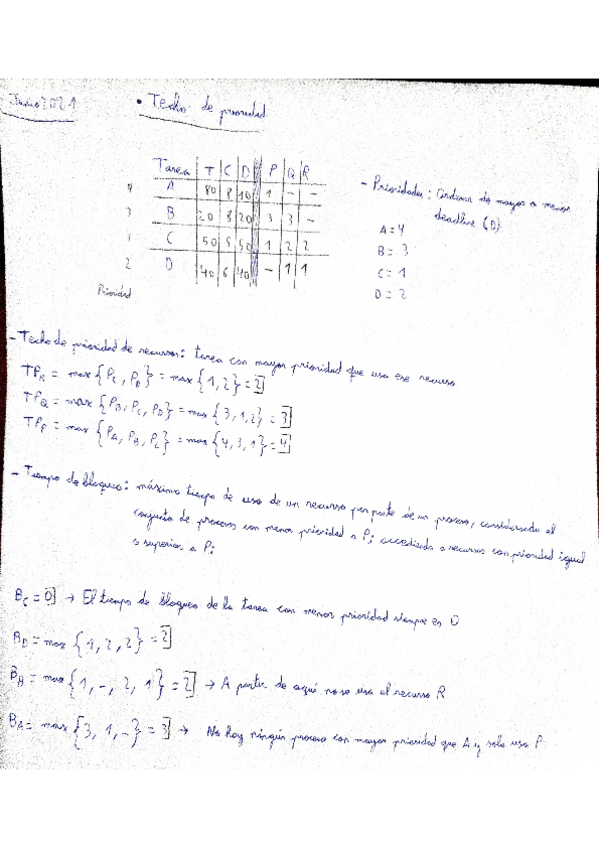 Junio 2021
• Techo de prioridad
Tarea T C D P Q R
4 A 80 8 10 1 - -
3 B 20 8 20 3 3 -
1 C 50 5 50 1 2 2
2 D 40 6 40 - 1 1
Prioridad
- Prioridades: Ordenar de mayor a menor
deadline (D)
A = 4
B = 3
C = 1
D = 2
- Techo de prioridad de recursos: tarea con mayor prioridad que usa ese recurso
TP_R = max {P_C, P_D} = max {1, 2} = 2
TP_Q = max {P_B, P_C, P_D} = max {3, 1, 2} = 3
TP_P = max {P_A, P_B, P_C} = max {4, 3, 1} = 4
- Tiempo de bloqueo: máximo tiempo de uso de un recurso por parte de un proceso, considerando el
conjunto de procesos con menor prioridad a Pi accediendo a recursos con prioridad igual
o superior a Pi
B_C = 0 → El tiempo de bloqueo de la tarea con menor prioridad siempre es 0
B_D = max {1, 2, 2} = 2
B_B = max {1, -, 2, 1} = 2 → A partir de aquí no se usa el recurso R
B_A = max {3, 1, -} = 3 → No hay ningún proceso con mayor prioridad que A y solo usa P